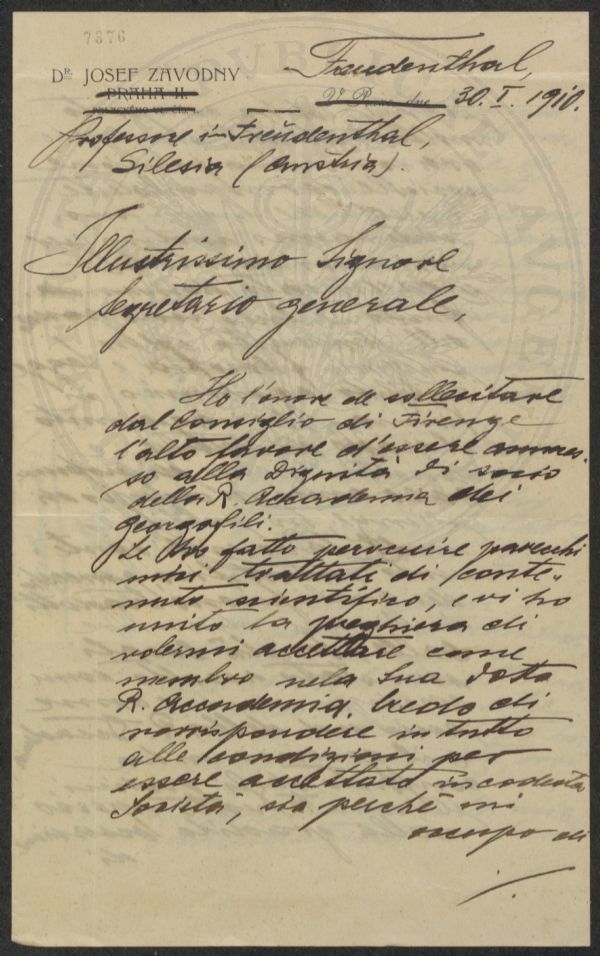 7376
DR. JOSEF ZAVODNY
PRAHA II.
Freudenthal,
V Praze, dne 30. I. 1910.
Professore in Freudenthal,
Silesia (Austria).
Illustrissimo Signore
Segretario generale,
Ho l'onore di sollecitare
dal Consiglio di Firenze
l'alto favore d'essere ammes-
so alla Dignità di socio
della R. Accademia dei
Georgofili.
Le ho fatto pervenire parecchi
miei trattati di conte-
nuto scientifico, e vi ho
unito la preghiera di
volermi accettare come
membro nella Sua dotta
R. Accademia. Credo di
corrispondere in tutto
alle condizioni per
essere accettato in codesta
Società, sia perchè mi
occupo di